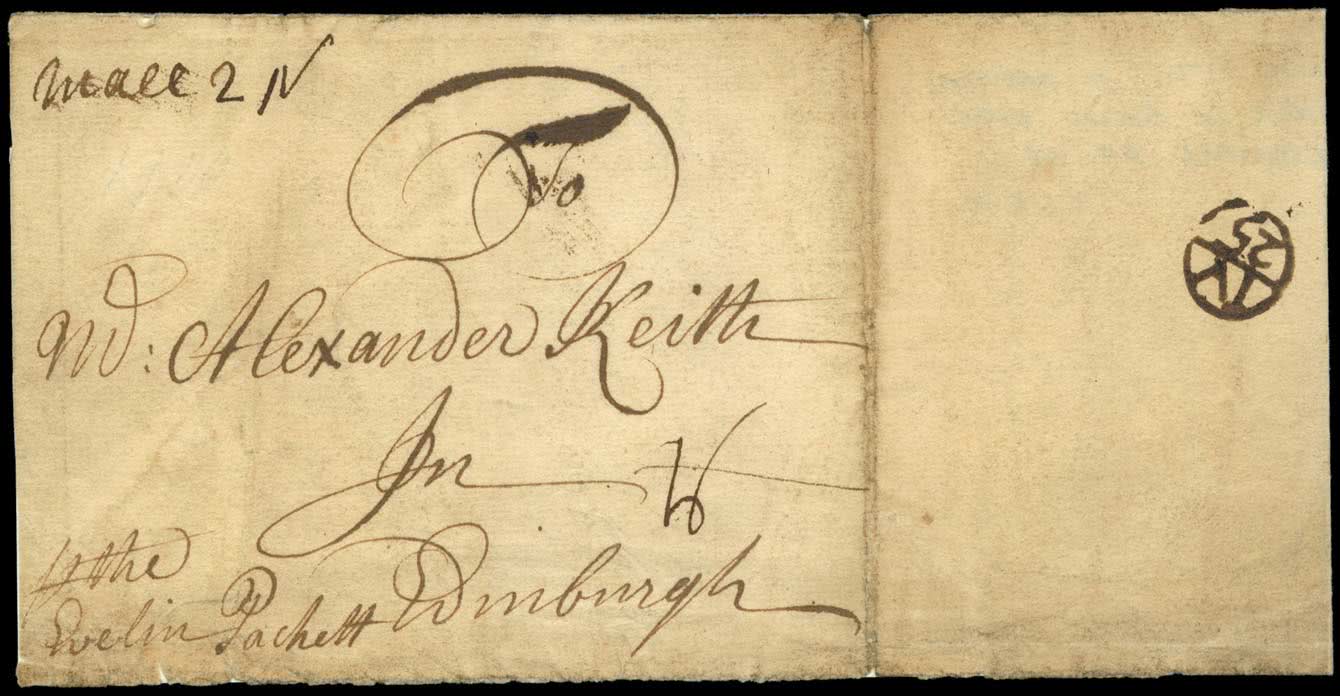 To
Mr: Alexander Keith
In
Edinburgh
⅌ the
Evelin Packett